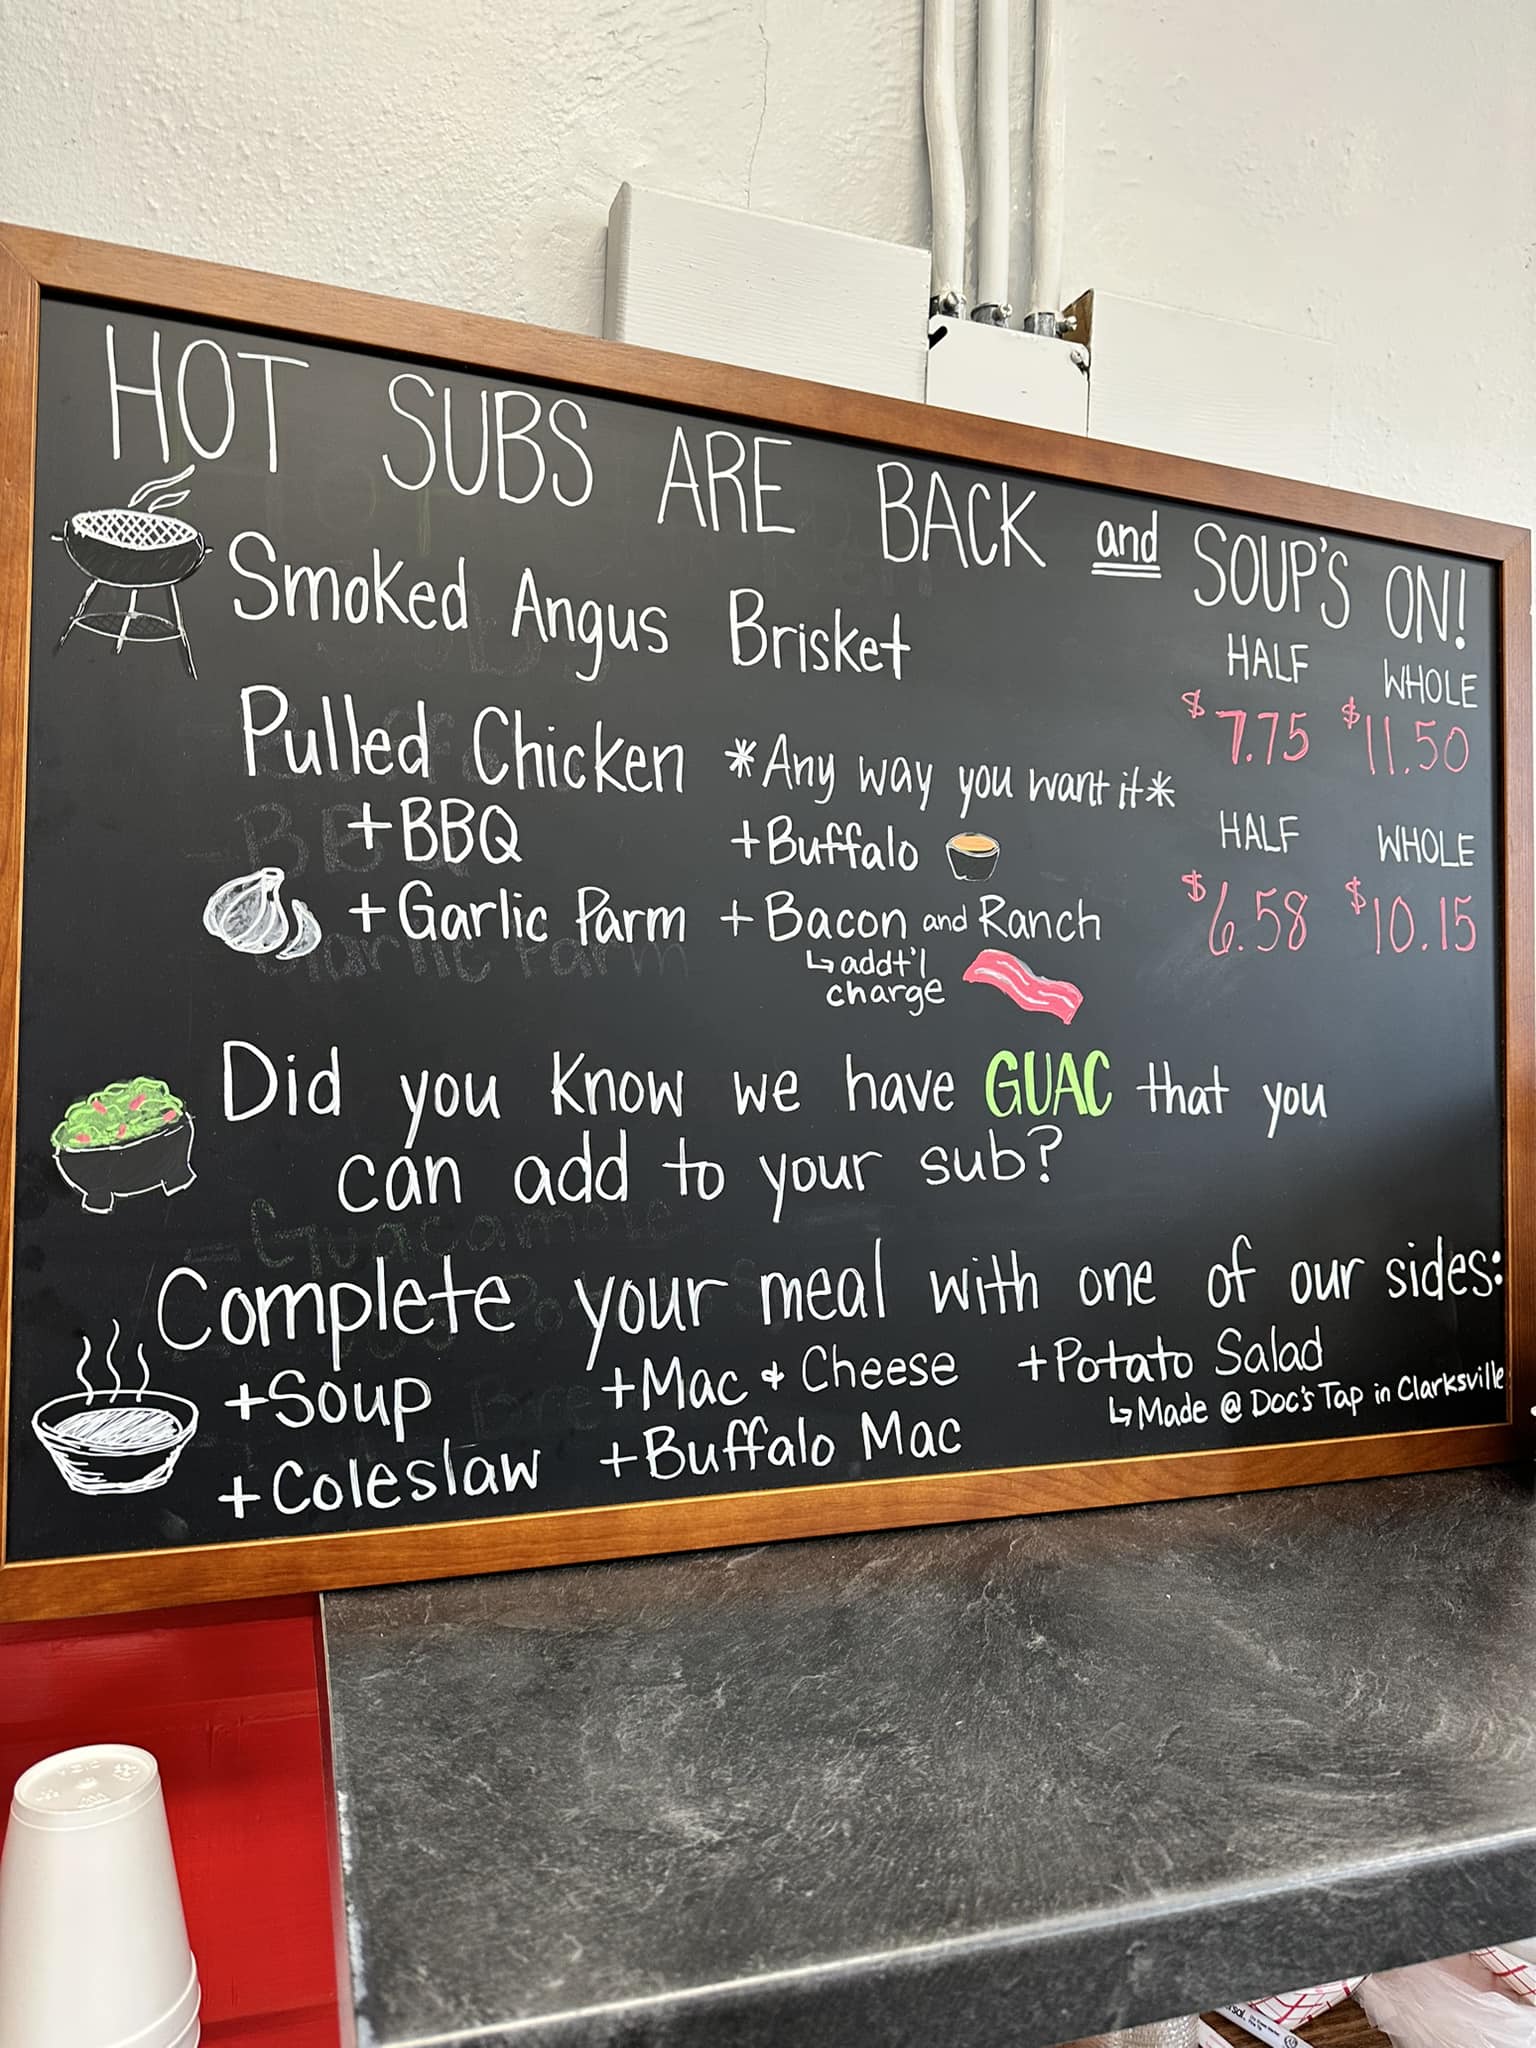 HOT SUBS ARE BACK and SOUP'S ON!
Smoked Angus Brisket
HALF WHOLE
$7.75 $11.50
Pulled Chicken *Any way you want it*
HALF WHOLE
$6.58 $10.15
+BBQ +Buffalo
+Garlic Parm +Bacon and Ranch
↳addt'l
charge
Did you know we have GUAC that you
can add to your sub?
Complete your meal with one of our sides:
+Soup +Mac & Cheese +Potato Salad
↳Made @ Doc's Tap in Clarksville
+Coleslaw +Buffalo Mac